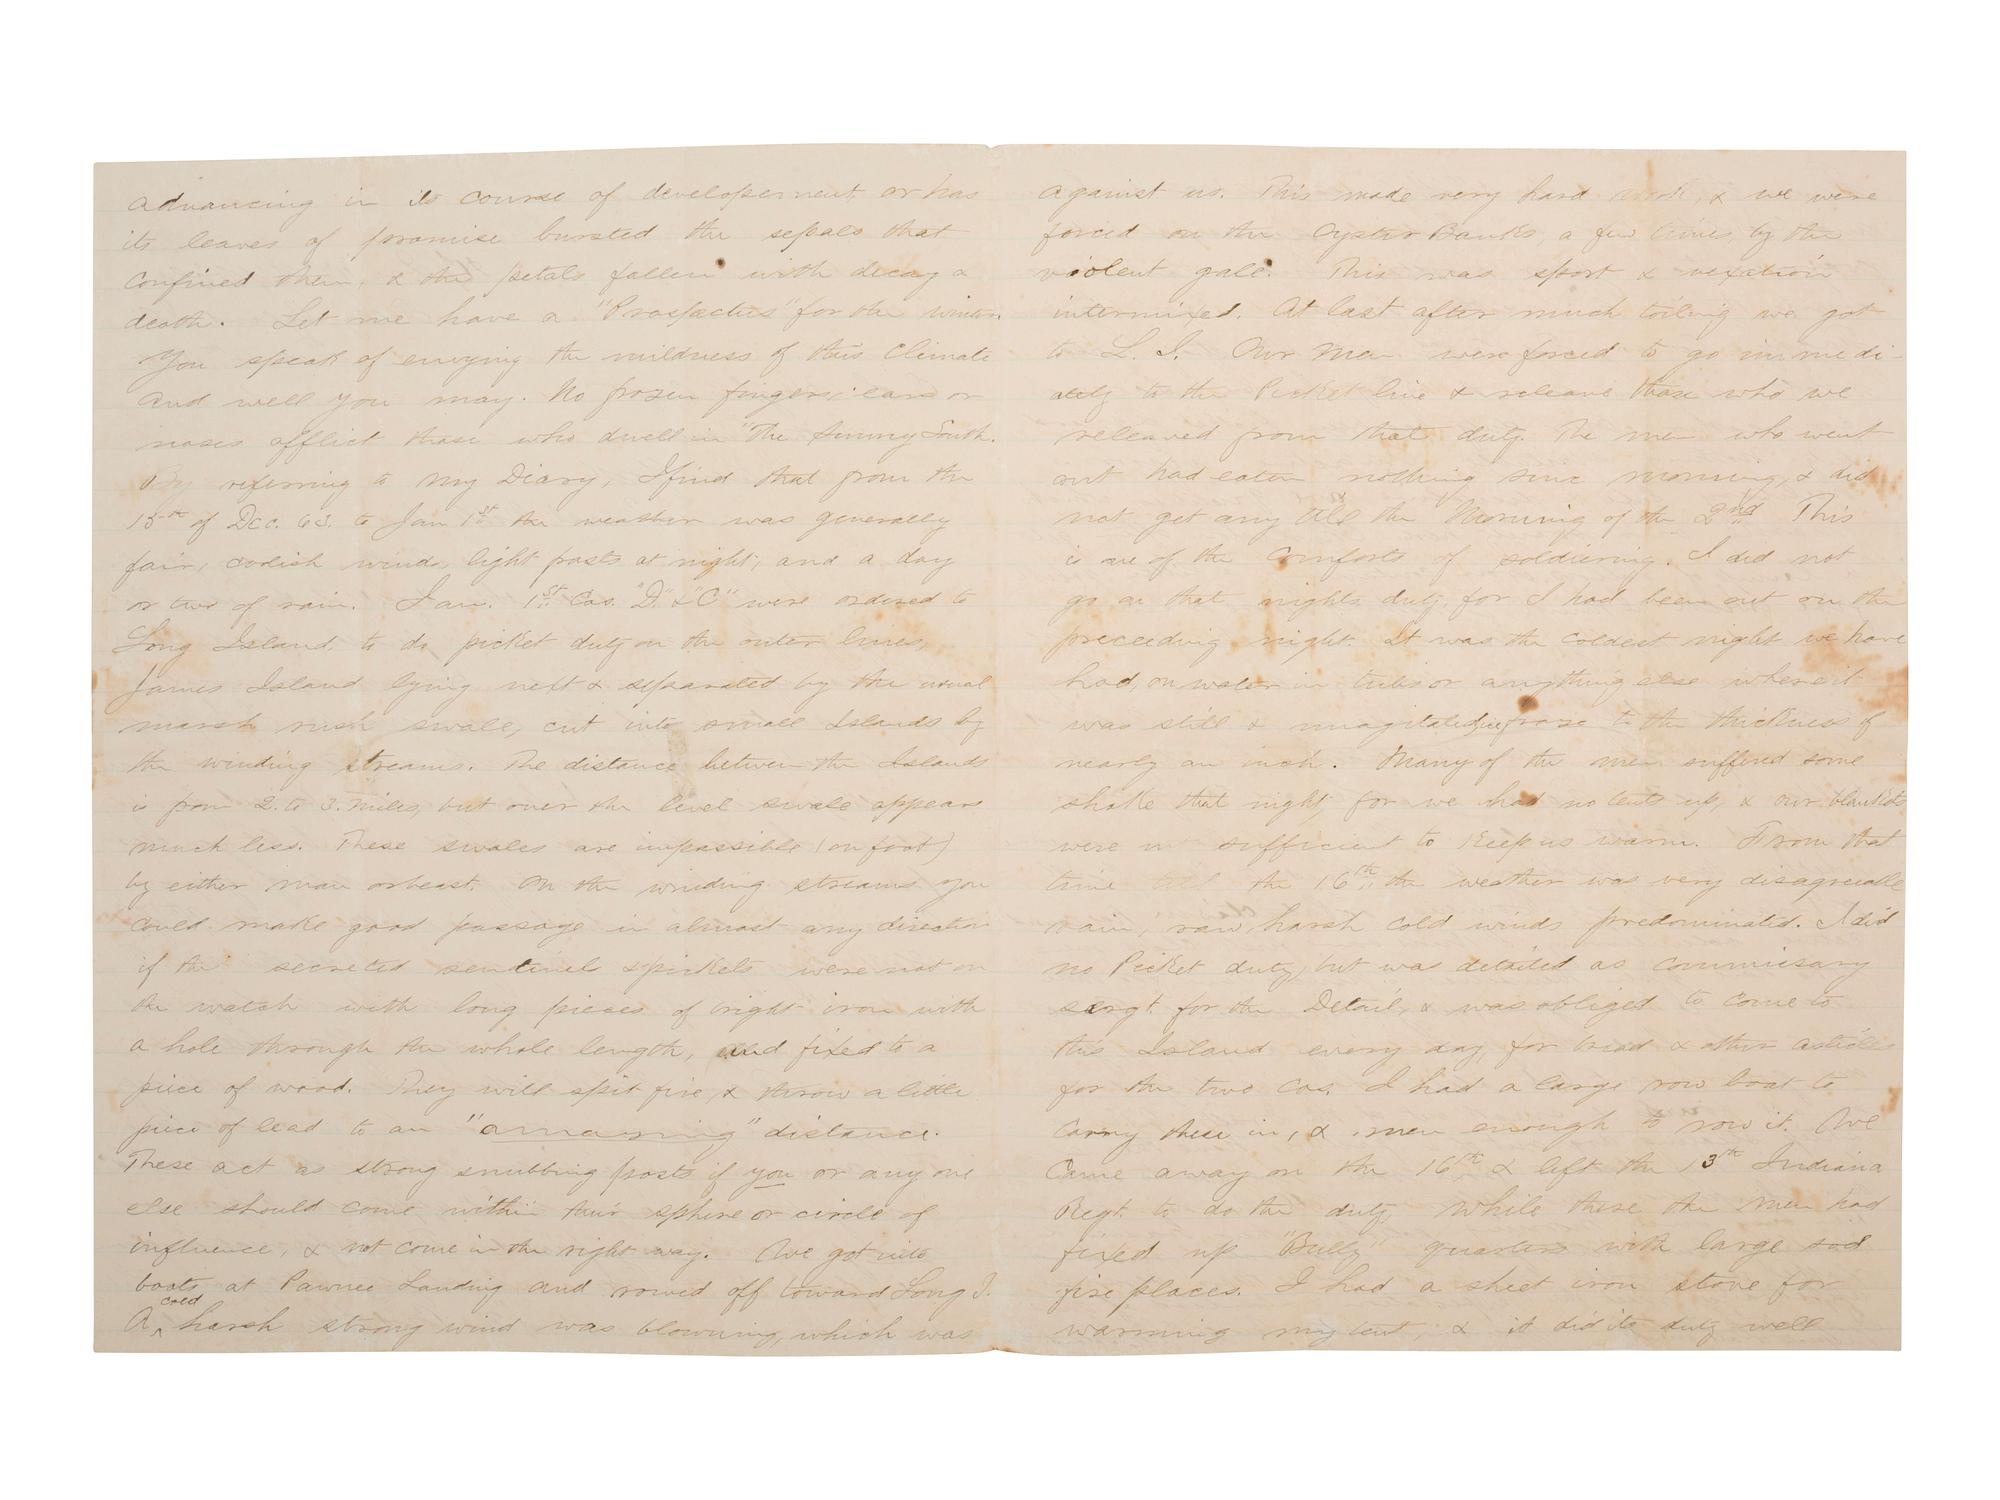 advancing in its course of developement, or has
its leaves of promise bursted the sepals that
confined them, & the petals fallen with decay &
death. Let me have a "Prospectus" for the winter.
You speak of envying the mildness of this climate
and well you may. No frozen fingers, ears or
noses afflict those who dwell in "the Sunny South.
By referring to my Diary, I find that from the
15th of Dec. 63. to Jan 1st the weather was generally
fair, coolish winds, light frosts at night, and a day
or two of rain. Jan. 1st Cos. "D." & "C" were ordered to
Long Island, to do picket duty on the outer lines,
James Island lying next & separated by the usual
marsh rush swale, cut into small Islands by
the winding streams. The distance between the Islands
is from 2. to 3. miles, but over the level swale appears
much less. These swales are impassible (on foot)
by either man or beast. On the winding streams you
could make good passage in almost any direction
if the secreted sentinels & pickets were not on
the watch with long pieces of bright iron with
a hole through the whole length, and fixed to a
piece of wood. They will spit fire, & throw a little
piece of lead to an "amazing" distance.
These act as strong snubbing posts if you or any one
else should come within their sphere or circle of
influence, & not come in the right way. We got into
boats at Pawnee Landing and rowed off toward Long I.
A cold harsh strong wind was blowing, which was
against us. This made very hard work, & we were
forced on the Oyster Banks, a few times, by the
violent gale. This was sport & vexation
intermixed. At last after much toiling we got
to L. I. Our men were forced to go immedi-
ately to the Picket line & releave those who we
releaved from that duty. The men who went
out had eaten nothing since morning, & did
not get any till the Morning of the 2nd This
is one of the comforts of soldiering. I did not
go on that nights duty, for I had been out on the
preceeding night. It was the coldest night we have
had, on water in tubs or anything else where it
was still & unagitated froze to the thickness of
nearly an inch. Many of the men suffered some
shake that night, for we had no tents up, & our blankets
were not sufficient to keep us warm. From that
time till the 16th the weather was very disagreeable
rain, raw harsh cold winds predominated. I did
no Picket duty, but was detailed as commissary
sergt. for the Detail, & was obliged to come to
this Island every day, for bread & other articles
for the two Cos. I had a large row boat to
carry these in, & men enough to row it. We
came away on the 16th & left the 13th Indiana
Regt. to do the duty. While there the men had
fixed up "Bully" quarters with large sod
fire places. I had a sheet iron stove for
warming my tent, & it did its duty well